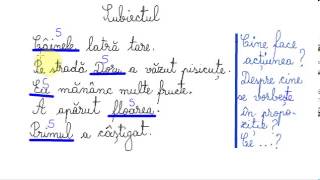 Subiectul
S
Câinele latră tare.
S
Pe stradă Doru a văzut pisicuțe.
S
Eu mănânc multe fructe.
S
A apărut floarea.
S
Primul a câștigat.
Cine face
acțiunea?
Despre cine
se vorbește
în propo-
ziție?
Ce ...?